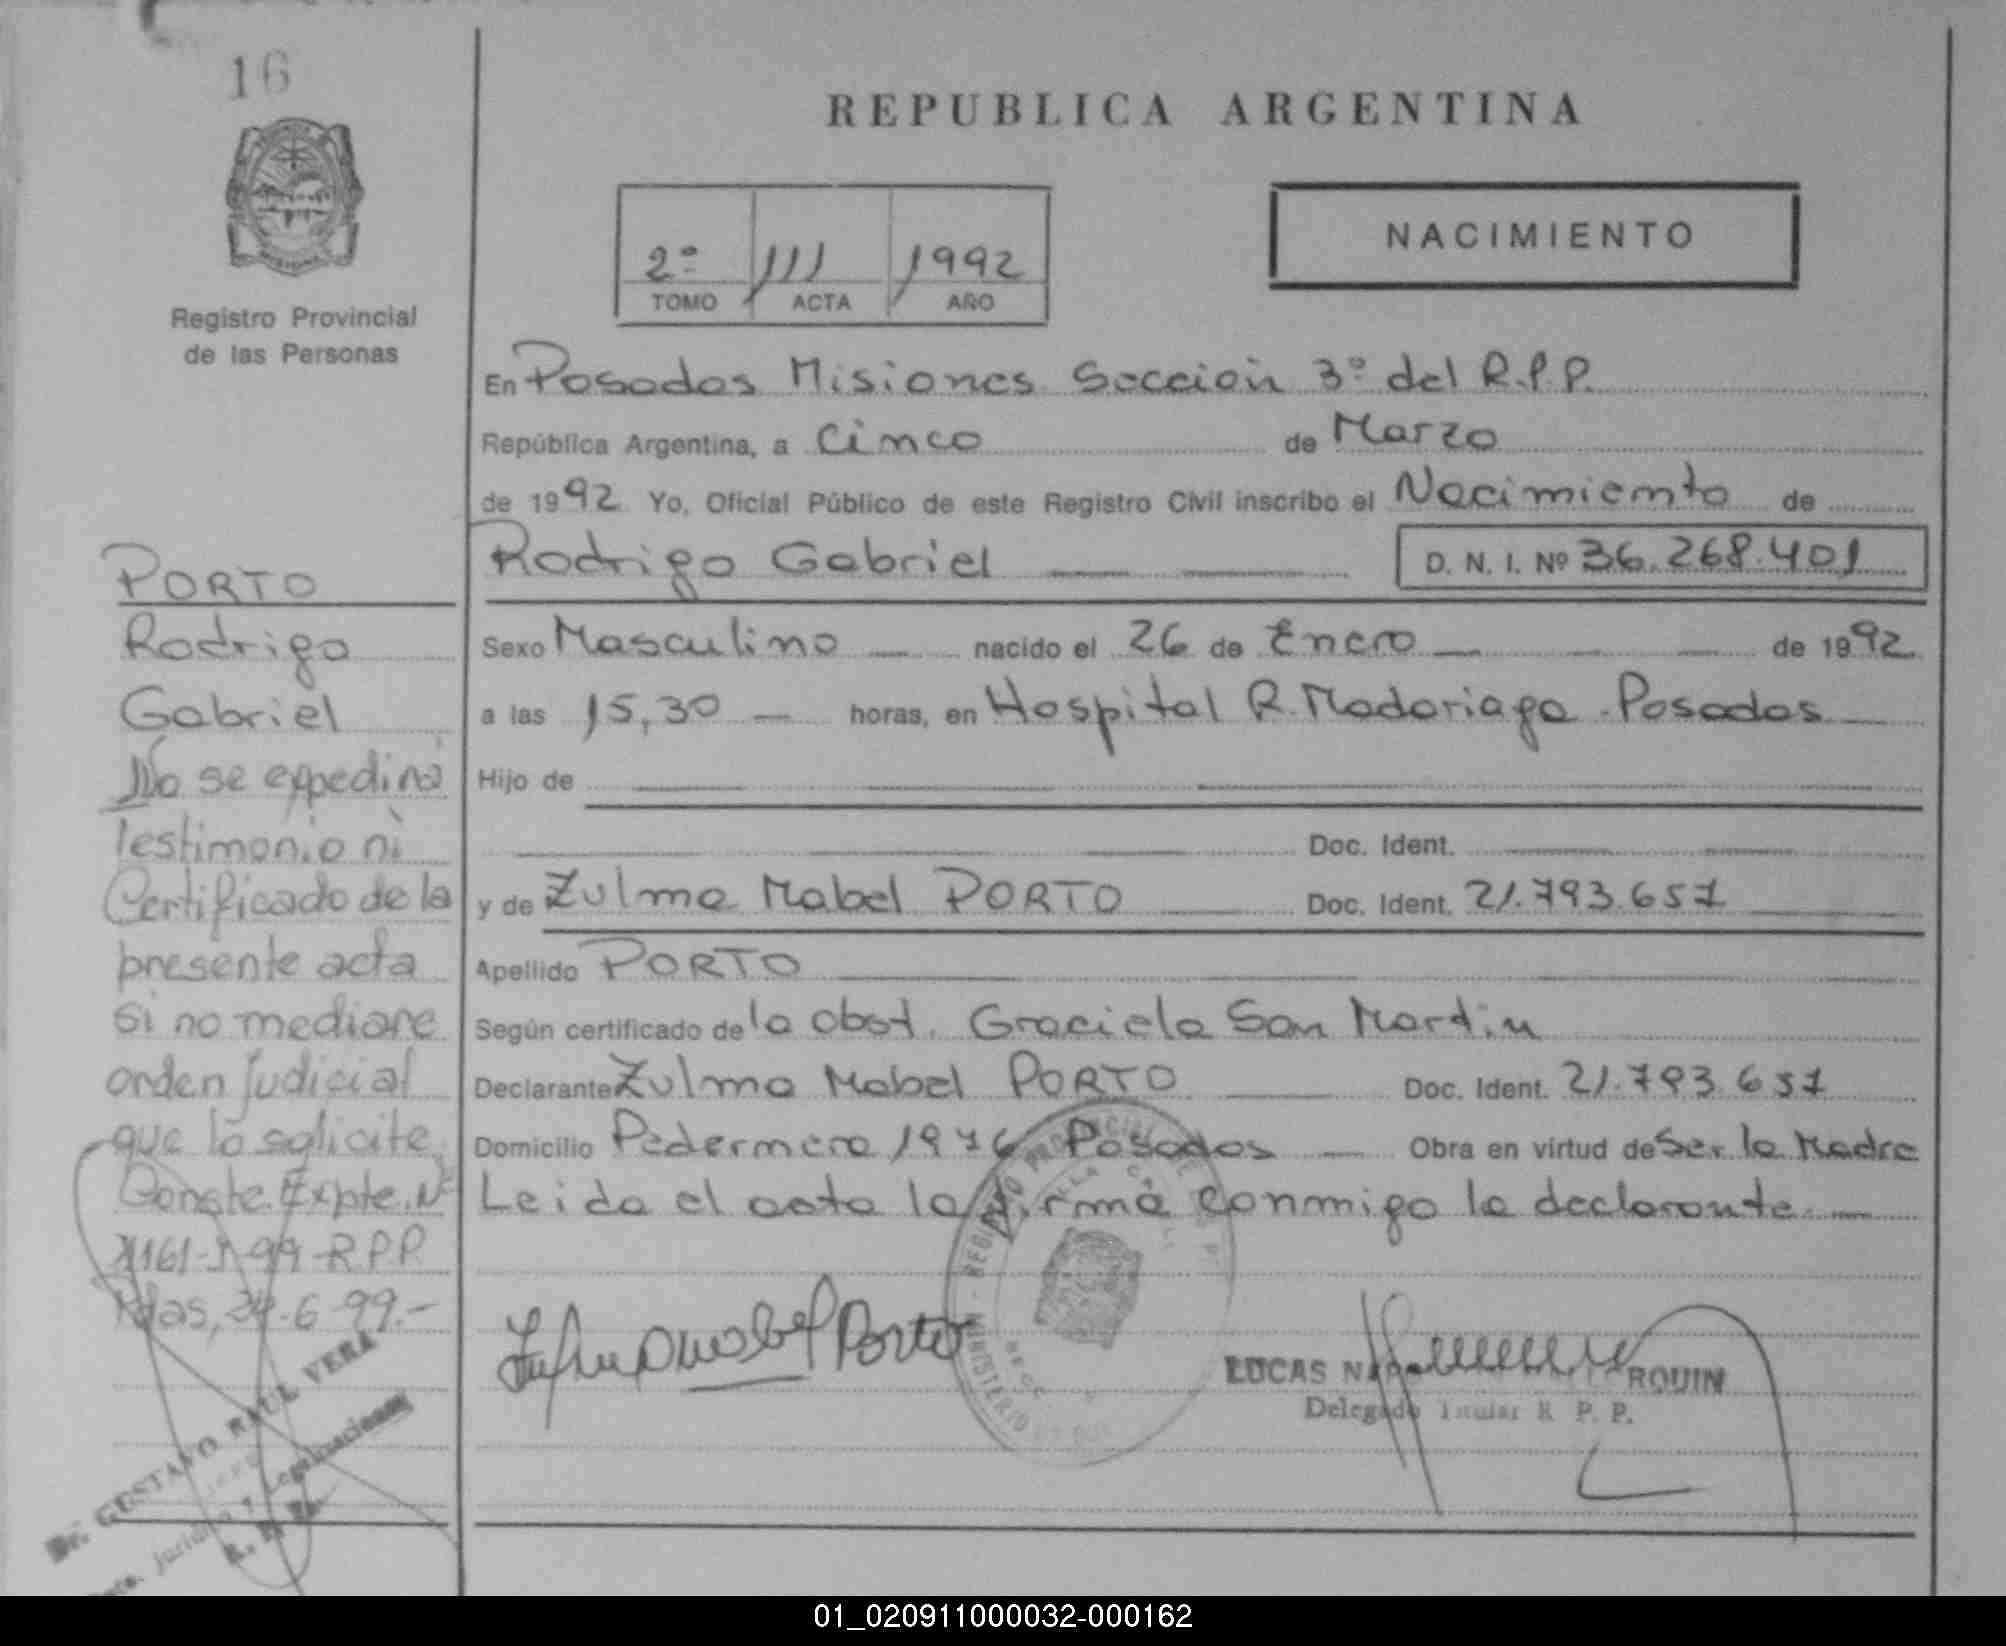 16
REPUBLICA ARGENTINA
NACIMIENTO
2º 111 1992
TOMO ACTA AÑO
Registro Provincial
de las Personas
En Posadas Misiones Sección 3º del R.P.P.
República Argentina, a Cinco de Marzo
de 1992 Yo, Oficial Público de este Registro Civil inscribo el Nacimiento de
Rodrigo Gabriel D. N. I. Nº 36.268.401
Sexo Masculino nacido el 26 de Enero de 1992
a las 15,30 horas, en Hospital R. Madariaga Posadas
Hijo de
Doc. Ident.
y de Zulma Mabel PORTO Doc. Ident. 21.793.657
Apellido PORTO
Según certificado de la obst. Graciela San Martin
Declarante Zulma Mabel PORTO Doc. Ident. 21.793.657
Domicilio Pedernera 1976 Posadas Obra en virtud de Ser la Madre
Leida el acta la firma conmigo la declarante
PORTO
Rodrigo
Gabriel
No se expedirá
Testimonio ni
Certificado de la
presente acta
si no mediare
orden Judicial
que lo solicite
Conste. Expte. Nº
1161-J-99-R.P.P.
Pdas, 24.6-99.-
Zulma Mabel Porto
LUCAS ROUIN
Delegado Titular R. P. P.
Dr. GUSTAVO RAUL VERA
Legalizaciones
01_020911000032-000162